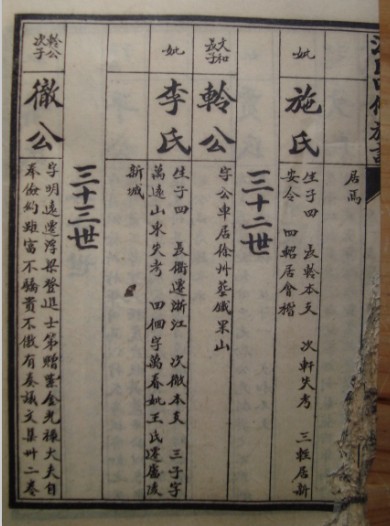 居焉
妣
施氏
生子四 長軨本支 次軒失考 三輊居新
安令 四軺居會稽
三十二世
文和
長子
軨公
字公車居徐州葬鐵果山
妣
李氏
生子四 長衢遷浙江 次徹本支 三子字
萬遠山東失考 四徊字萬春妣王氏遷廬陵
新城
三十三世
軨公
次子
徹公
字明遠遷浮梁登進士第贈紫金光祿大夫自
奉儉約雖富不驕貴不傲有奏議文集卅二卷